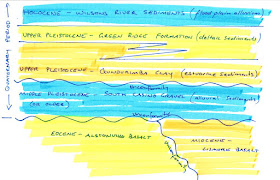 HOLOCENE - WILSONS RIVER SEDIMENTS (flood plain alluvium)
UPPER PLEISTOCENE - GREEN RIDGE FORMATION (deltaic sediments)
UPPER PLEISTOCENE - GUNDURIMBA CLAY (estuarine sediments)
Unconformity
MIDDLE PLEISTOCENE - SOUTH CASINO GRAVEL (alluvial sediments)
(OR OLDER)
Unconformity
EOCENE - ALSTONVILLE BASALT
MIOCENE -
LISMORE BASALT
QUATERNARY PERIOD